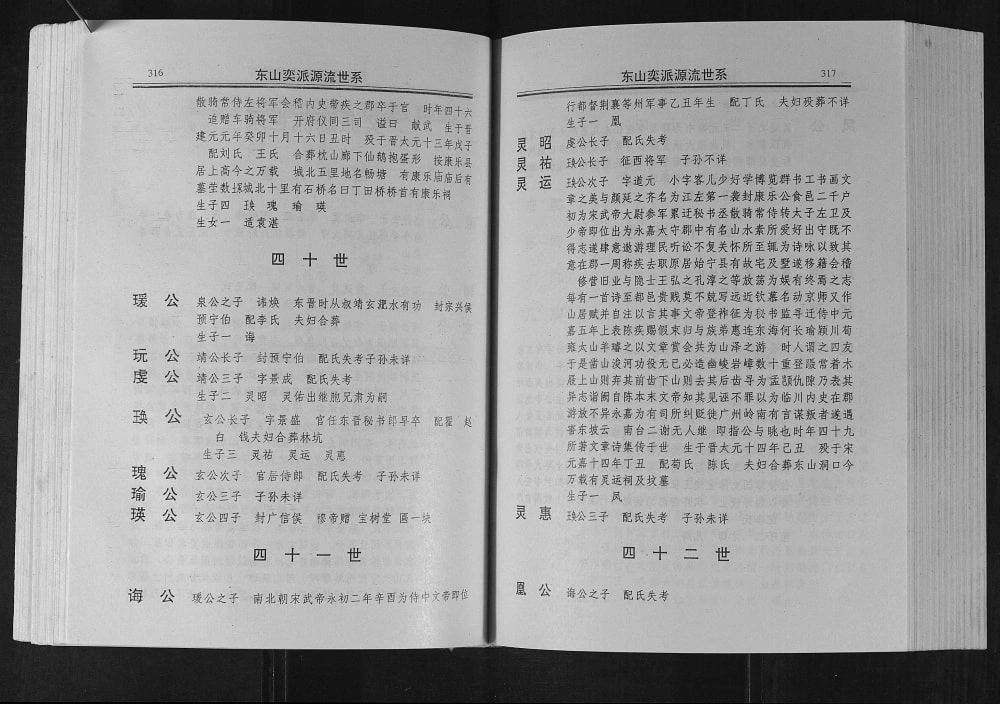 316
东山奕派源流世系
散骑常侍左将军会稽内史带疾之郡卒于官 时年四十六
追赠车骑将军 开府仪同三司 谥曰 献武 生于晋
建元元年癸卯十月十六日丑时 殁于晋太元十三年戊子
配刘氏 王氏 合葬枕山廊下仙鹅抱蛋形 按康乐县
居上高今之万载 城北五里地名畅塘 有康乐庙庙后有
墓茔数㧲城北十里有石桥名曰丁田桥桥首有康乐祠
生子四 瑍 瑰 瑜 瑛
生女一 适袁湛
四十世
瑗公 泉公之子 讳焕 东晋时从叔靖玄淝水有功 封宗兴侯
预宁伯 配李氏 夫妇合葬
生子一 诲
玩公 靖公长子 封预宁伯 配氏失考子孙未详
虔公 靖公三子 字景成 配氏失考
生子二 灵昭 灵佑出继胞兄肃为嗣
瑍公 玄公长子 字景盛 官任东晋秘书郎早卒 配翟 赵
白 钱夫妇合葬林坑
生子三 灵祐 灵运 灵惠
瑰公 玄公次子 官居侍郎 配氏失考 子孙未详
瑜公 玄公三子 子孙未详
瑛公 玄公四子 封广信侯 穆帝赠 宝树堂 匾一块
四十一世
诲公 瑗公之子 南北朝宋武帝永初二年辛酉为侍中文帝即位
东山奕派源流世系
317
行都督荆襄等州军事乙丑年生 配丁氏 夫妇殁葬不详
生子一 凰
灵昭 虔公长子 配氏失考
灵祐 瑍公长子 征西将军 子孙不详
灵运 瑍公次子 字道元 小字客儿少好学博览群书工书画文
章之美与颜延之齐名为江左第一袭封康乐公食邑二千户
初为宋武帝太尉参军累迁秘书丞散骑常侍转太子左卫及
少帝即位出为永嘉太守郡中有名山水素所爱好出守既不
得志遂肆意遨游民理听讼不复关怀所至为诗咏以致其
意在郡一周称疾去职原居始宁县有故宅及墅遂移籍会稽
修营旧业与隐士王弘之孔淳之等放荡为娱有终焉之志
每有一首诗至都邑贵贱莫不就写远近钦慕名动京师又作
山居赋并自注以言其事文帝登祚征为秘书监寻迁侍中元
嘉五年上表陈疾赐假东归与族弟惠连东海何长瑜颍川荀
雍太山羊璿之以文章赏会共为山泽之游 时人谓之四友
于是凿山浚河功役无已必造幽峻岩嶂数十重登蹑常着木
屐上山则弃其前齿下山则去其后齿寻为孟𫖮仇隙乃表其
异志诣阙自陈本末文帝知其见诬不罪以为临川内史在郡
游放不异永嘉为有司所纠贬徙广州岭南有言谋叛者遂遇
害东坡云 南台二谢无人继 即指公与眺也时年四十九
所著文章诗集传于世 生于晋太元十四年己丑 殁于宋
元嘉十四年丁丑 配菊氏 陈氏 夫妇合葬东山洞口今
万载有灵运祠及坟墓
生子一 凤
灵惠 瑍公三子 配氏失考 子孙未详
四十二世
凰公 海公之子 配氏失考